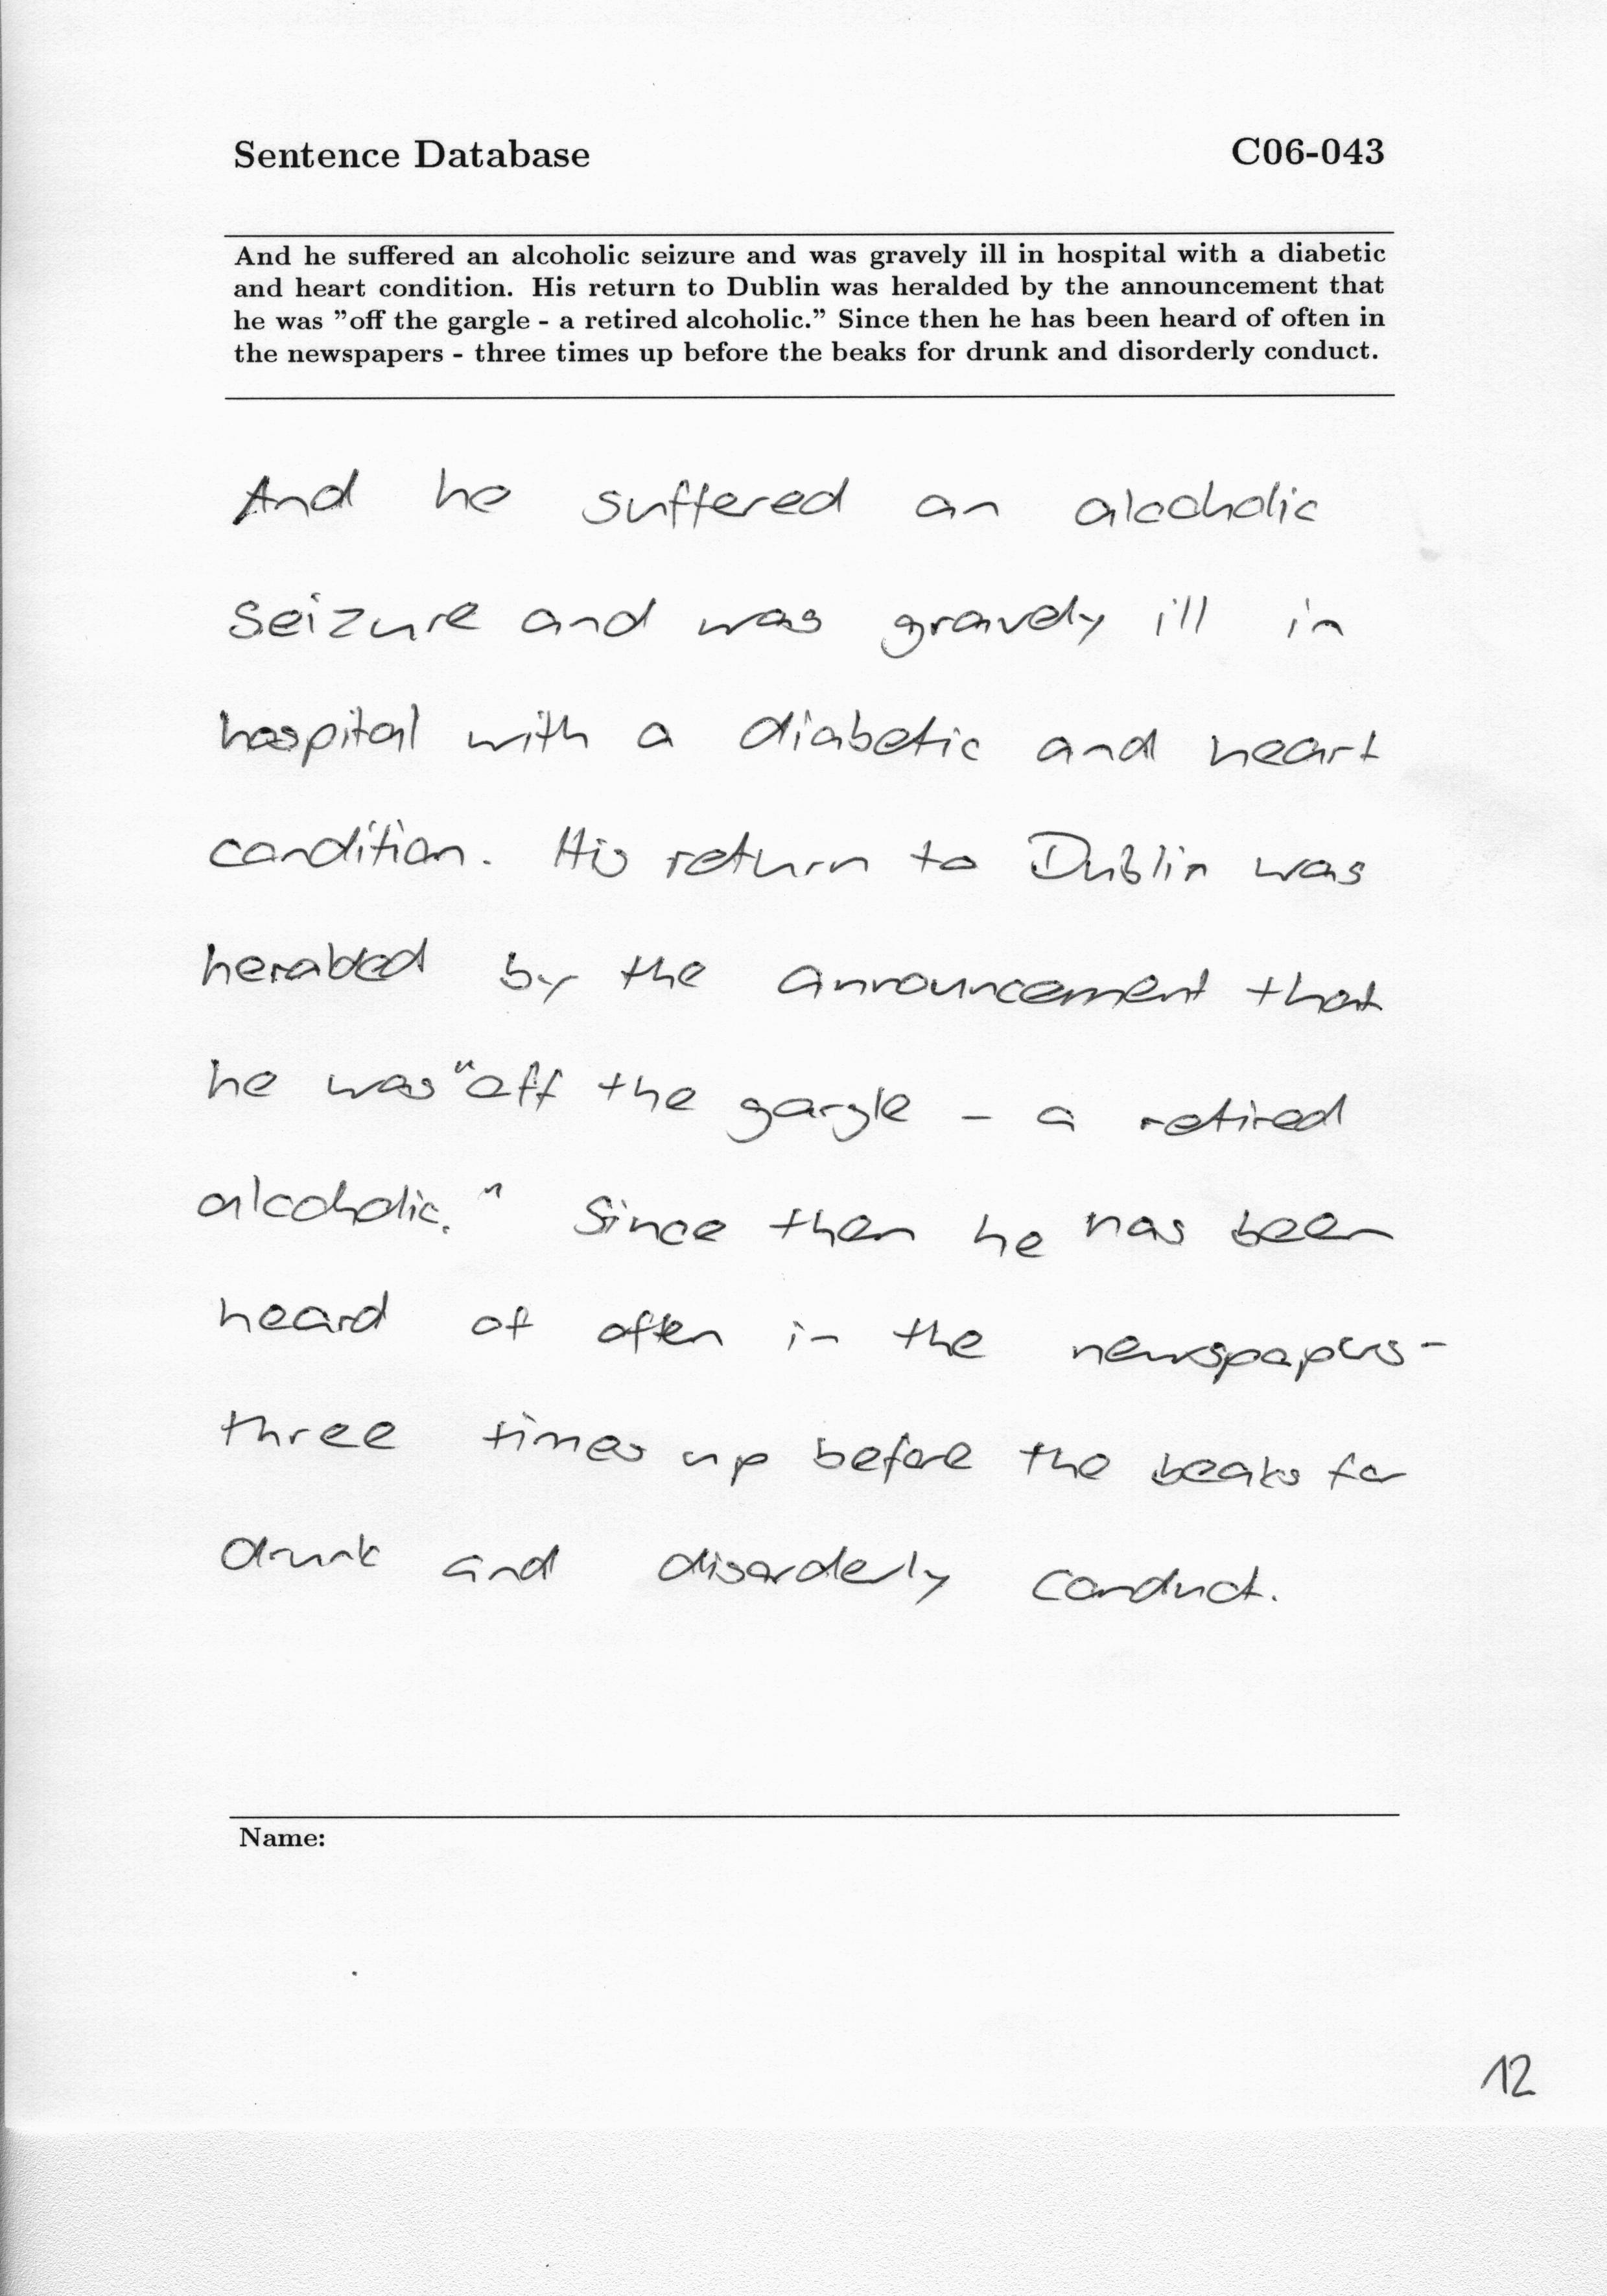 Sentence Database C06-043
And he suffered an alcoholic seizure and was gravely ill in hospital with a diabetic
and heart condition. His return to Dublin was heralded by the announcement that
he was ”off the gargle - a retired alcoholic.” Since then he has been heard of often in
the newspapers - three times up before the beaks for drunk and disorderly conduct.
And he suffered an alcoholic
seizure and was gravely ill in
hospital with a diabetic and heart
condition. His return to Dublin was
heralded by the announcement that
he was "off the gargle - a retired
alcoholic." Since then he has been
heard of often in the newspapers -
three times up before the beaks for
drunk and disorderly conduct.
Name:
12